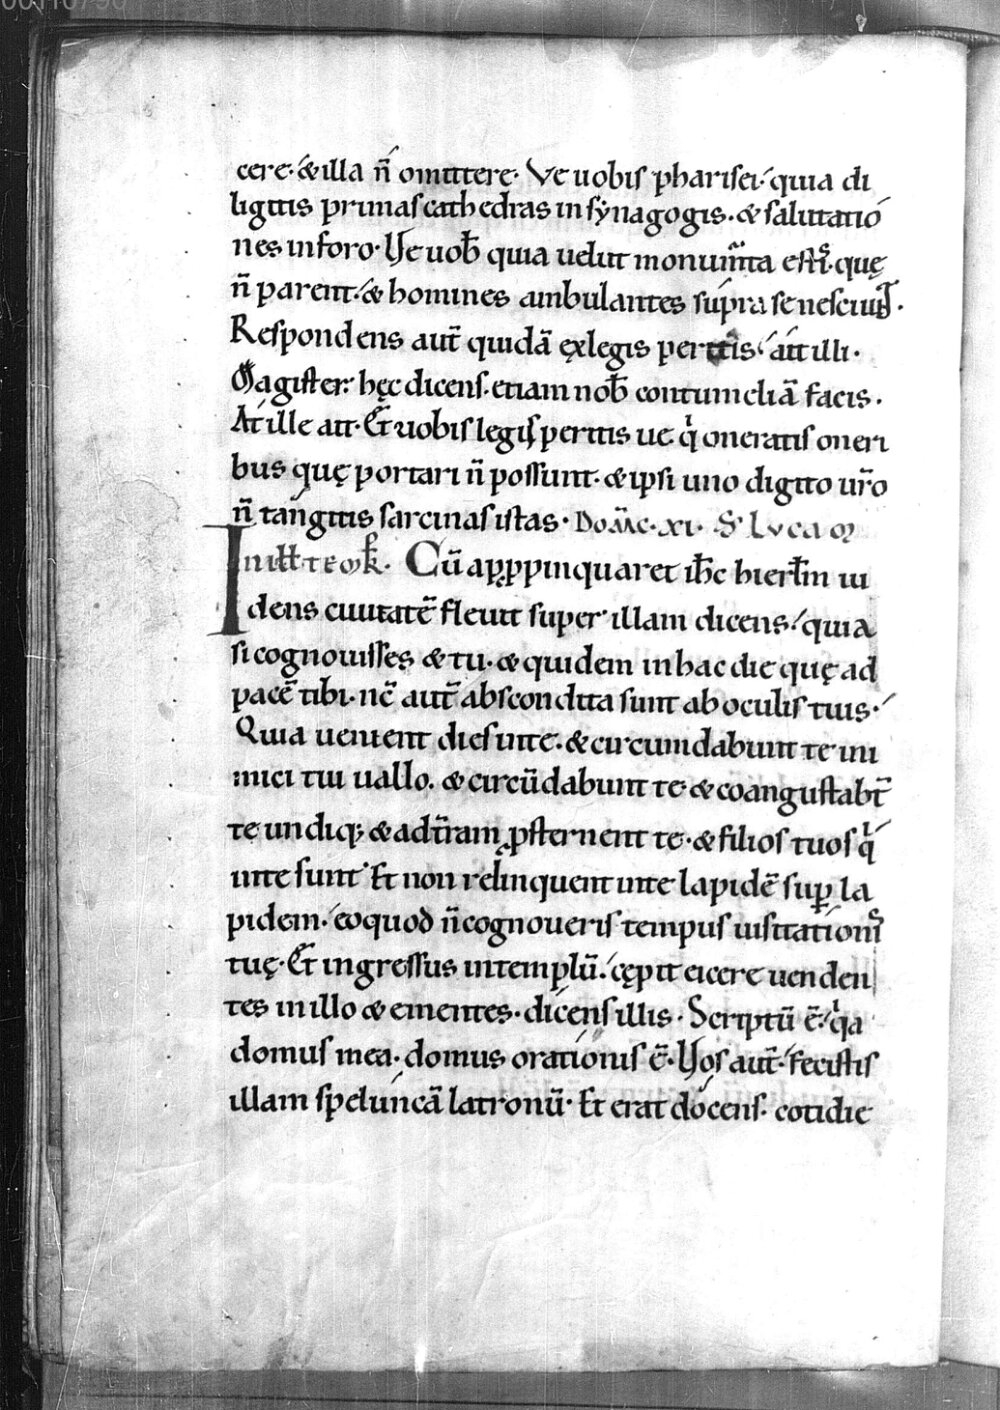 cere· & illa n̄ omittere· Ve uobis pharisei· quia di
ligitis primas cathedras in synagogis· & salutatio
nes in foro· Ve uob̄ quia uelut monum̄ta estis· quę
n̄ parent· & homines ambulantes supra se nesciunt·
Respondens aut̄ quidā ex legis peritis· ait illi·
Magister· hęc dicens· etiam nob̄ contumeliā facis·
At ille ait· Et uobis legis peritis ue· qi oneratis oneri
bus quę portari n̄ possunt· & ipsi uno digito ur̄o
n̄ tangitis sarcinas istas· Dom̄c· xi· S Lucam
In ill̄ temp̄r· Cū appropinquaret ih̄c hierl̄m ui
dens ciuitatē fleuit super illam dicens· quia
si cognouisses & tu· & quidem in hac die quę ad
pacē tibi· nc̄ aut̄ abscondita sunt ab oculis tuis·
Quia uenient dies in te· & circumdabunt te ini
mici tui uallo· & circūdabunt te· & coangustabt̄
te undiq; & ad t̄ram ꝓsternent te· & filios tuos qi
in te sunt· Et non relinquent in te lapidē suꝑ la
pidem· eo quod n̄ cognoueris tempus uisitationis
tuę· Et ingressus in templū· cępit eicere uenden
tes in illo & ementes· dicens illis· Scriptū ē· qa
domus mea· domus orationis ē· Vos aut̄ fecistis
illam speluncā latronū· Et erat docens· cotidie